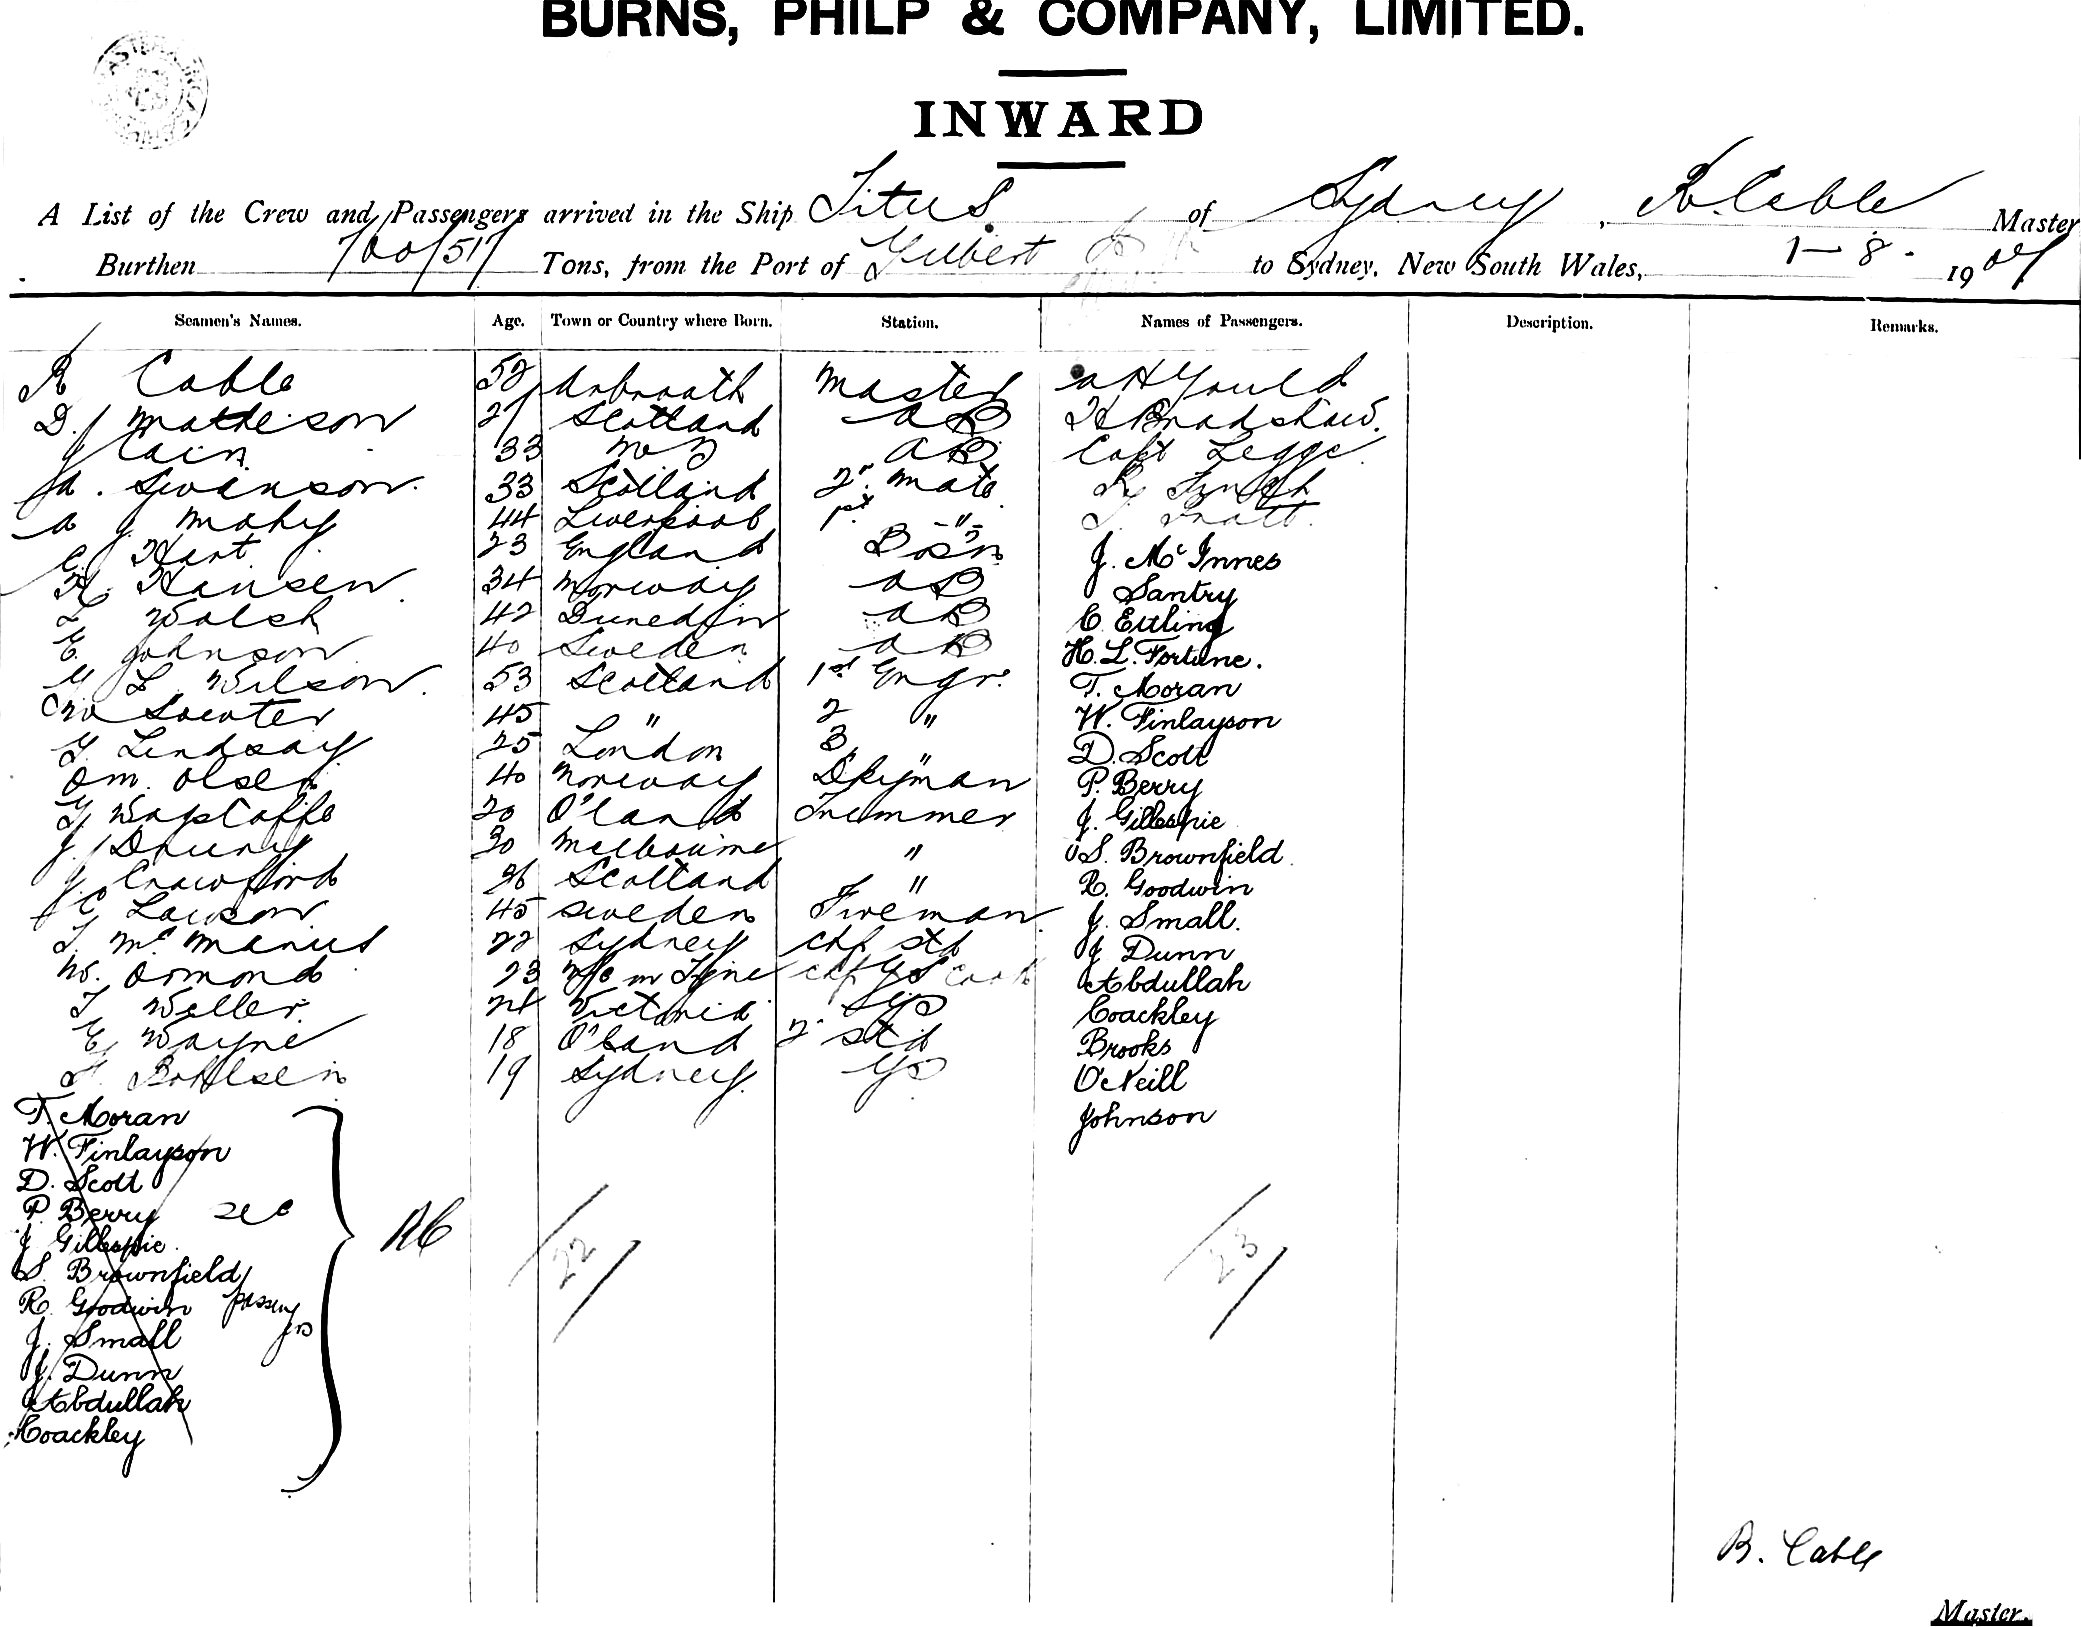 BURNS, PHILP & COMPANY, LIMITED.
INWARD
A List of the Crew and Passengers arrived in the Ship Titus of Sydney, R. Cable Master
Burthen 700/517 Tons, from the Port of Gilbert to Sydney, New South Wales, 1-8-1907
Seamen's Names. Age. Town or Country where Born. Station. Names of Passengers. Description. Remarks.
R Cable 52 Arbroath Master A H Gould
D. Matheson 27 Scotland AB H Bradshaw.
J Cain 33 AB Capt Legge
A. Swanson 33 Scotland 2nd Mate
A J. Mahy 44 Liverpool 1st " T. Pratt.
C. Hart 23 England Bosn J. McInnes
H. Hansen 34 Norway AB Santry
L Walsh 42 Dunedin AB C Ettling
E. Johnson 40 Sweden AB H. L. Fortune.
G L. Wilson. 53 Scotland 1st Engr. T. Moran
Wm Souter 45 " 2 " W. Finlayson
G. Lindsay 25 London 3 " D. Scott
O M. Olsen 40 Norway Dkyman P. Berry
20 Q'land Trimmer J. Gillespie
J. Druery 30 Melbourne " S. Brownfield.
J. Crawford 26 Scotland " R. Goodwin
C Lawson 45 Sweden Fireman J. Small.
T. McManus 22 Sydney chf std J Dunn
W. Ormond 23 N/C on Tyne chf GS cook Abdullah
T Weller 24 Victoria GS Coackley
E Wayne 18 Q'land 2 std Brooks
19 Sydney GS O'Neill
T. Moran Johnson
W. Finlayson
D. Scott
P. Berry see
J Gillespie
S. Brownfield
R. Goodwin passengers
J. Small
J. Dunn
Abdullah
Coackley
RC
22
23
R. Cable
Master.